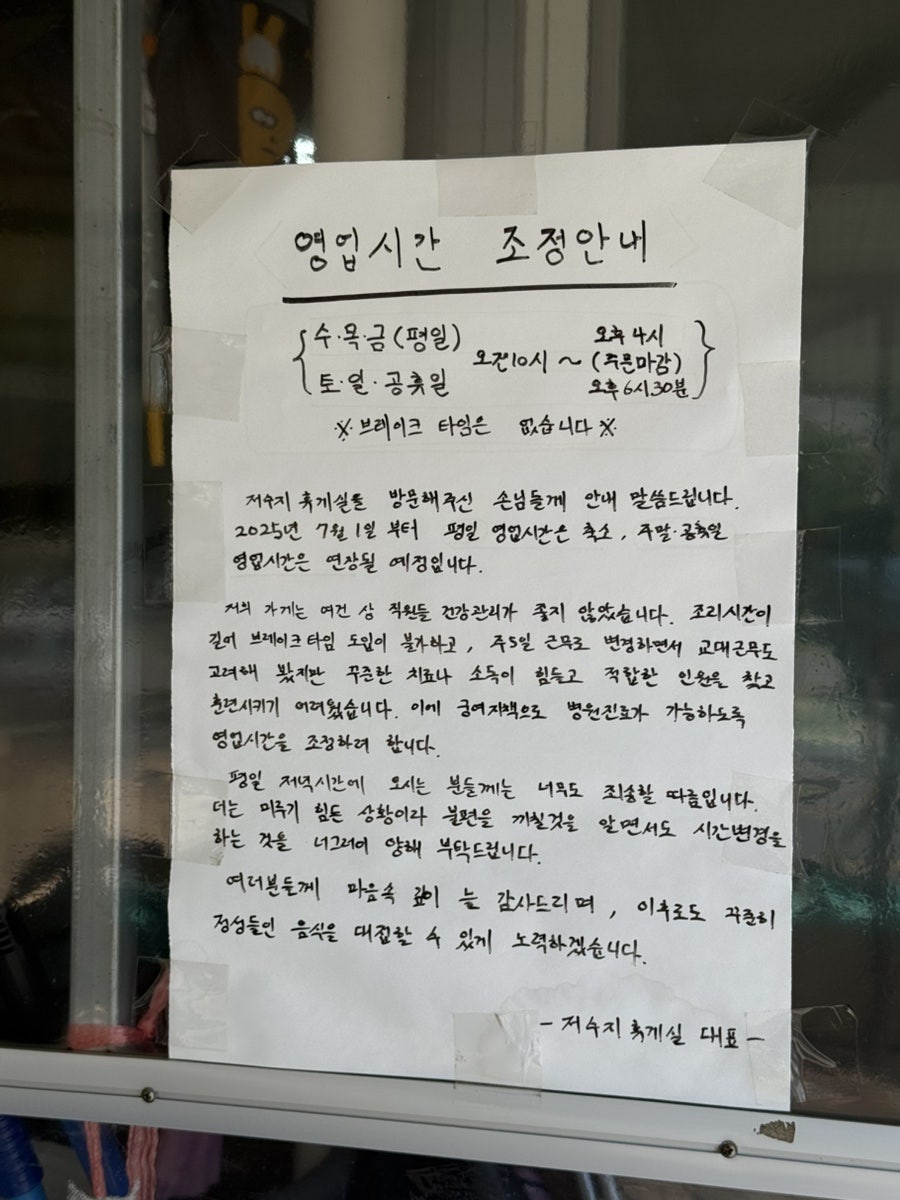 영업시간 조정안내
수·목·금(평일) 오전10시 ~ 오후 4시
(주문마감)
토·일·공휴일 오후 6시 30분
※ 브레이크 타임은 없습니다 ※
저수지 휴게실을 방문해주신 손님들께 안내 말씀드립니다.
2025년 7월 1일 부터 평일 영업시간은 축소, 주말·공휴일
영업시간은 연장될 예정입니다.
저희 가게는 여건 상 직원들 건강관리가 좋지 않았습니다. 조리시간이
길어 브레이크타임 도입이 불가하고, 주5일 근무로 변경하면서 교대근무도
고려해 봤지만 꾸준한 치료나 소득이 힘들고 적합한 인원을 찾고
훈련시키기 어려웠습니다. 이에 궁여지책으로 병원진료가 가능하도록
영업시간을 조정하려 합니다.
평일 저녁시간에 오시는 분들께는 너무도 죄송할 따름입니다.
더는 미루기 힘든 상황이라 불편을 끼칠것을 알면서도 시간변경을
하는 것을 너그러이 양해 부탁드립니다.
여러분들께 마음속 깊이 늘 감사드리며, 이후로도 꾸준히
정성들인 음식을 대접할 수 있게 노력하겠습니다.
- 저수지 휴게실 대표 -